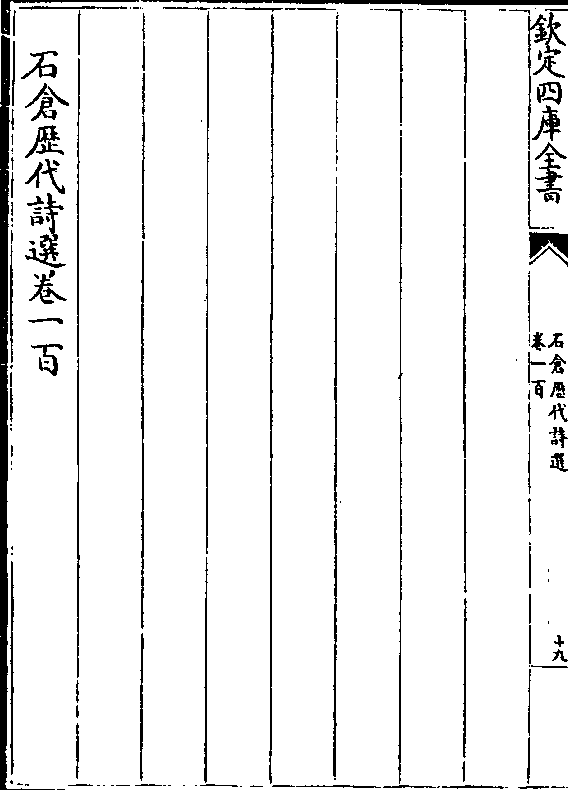 欽定四庫全書
石倉歷代詩選
卷一百
十九
石倉歷代詩選卷一百